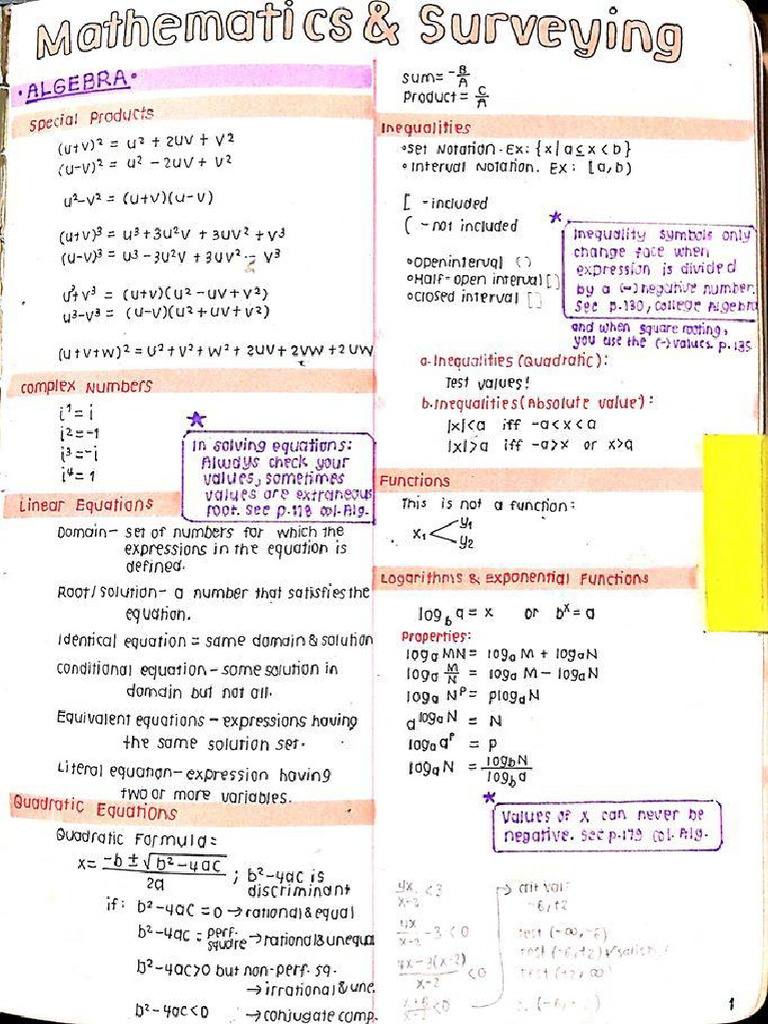 Mathematics & Surveying
• ALGEBRA •
Special Products
(u+v)² = u² + 2uv + v²
(u-v)² = u² - 2uv + v²
u²-v² = (u+v)(u-v)
(u+v)³ = u³+3u²v + 3uv² + v³
(u-v)³ = u³-3u²v + 3uv² - v³
u³+v³ = (u+v)(u²-uv+v²)
u³-v³ = (u-v)(u²+uv+v²)
(u+v+w)² = u²+v²+w²+2uv+2vw+2uw
Complex Numbers
i¹ = i
i² = -1
i³ = -i
i⁴ = 1
In solving equations:
Always check your
values, sometimes
values are extraneous
root. See p.118 col. Alg.
Linear Equations
Domain- set of numbers for which the
expressions in the equation is
defined.
Root/Solution- a number that satisfies the
equation.
Identical equation = same domain & solution
Conditional equation - some solution in
domain but not all.
Equivalent equations - expressions having
the same solution set.
Literal equation- expression having
two or more variables.
Quadratic Equations
Quadratic Formula:
x = -b ± √b²-4ac / 2a ; b²-4ac is
discriminant
if: b²-4ac = 0 → rational & equal
b²-4ac = perf. square → rational & unequa
b²-4ac>0 but non-perf. sq.
→ irrational & une.
b²-4ac<0 → conjugate comp.
sum = -B/A
Product = C/A
Inequalities
• Set Notation. Ex: {x | a ≤ x < b}
• Interval Notation. Ex: [a, b)
[ - included
( - not included
• Open interval ( )
• Half-open interval [ )
• Closed interval [ ]
Inequality symbols only
change face when
expression is divided
by a (-) negative number.
See p.130, College Algebra
and when square rooting,
you use the (-) values. p.135
a. Inequalities (Quadratic):
Test values!
b. Inequalities (Absolute value):
|x|<a iff -a<x<a
|x|>a iff -a>x or x>a
Functions
This is not a function:
x₁ < y₁
y₂
Logarithms & Exponential Functions
log_b a = x or bˣ = a
Properties:
logₐ MN = logₐ M + logₐ N
logₐ M/N = logₐ M - logₐ N
logₐ Nᵖ = p logₐ N
a^(logₐ N) = N
logₐ aᵖ = p
logₐ N = log_b N / log_b a
Values of x can never be
negative. See p.179 col. Alg.
4x/x-2 < 3
4x/x-2 - 3 < 0
4x-3(x-2)/x-2 < 0
x+6/x-2 < 0
→ crit val:
-6, +2
test (-∞, -6)
test (-6, +2)
test (+2, ∞)
1